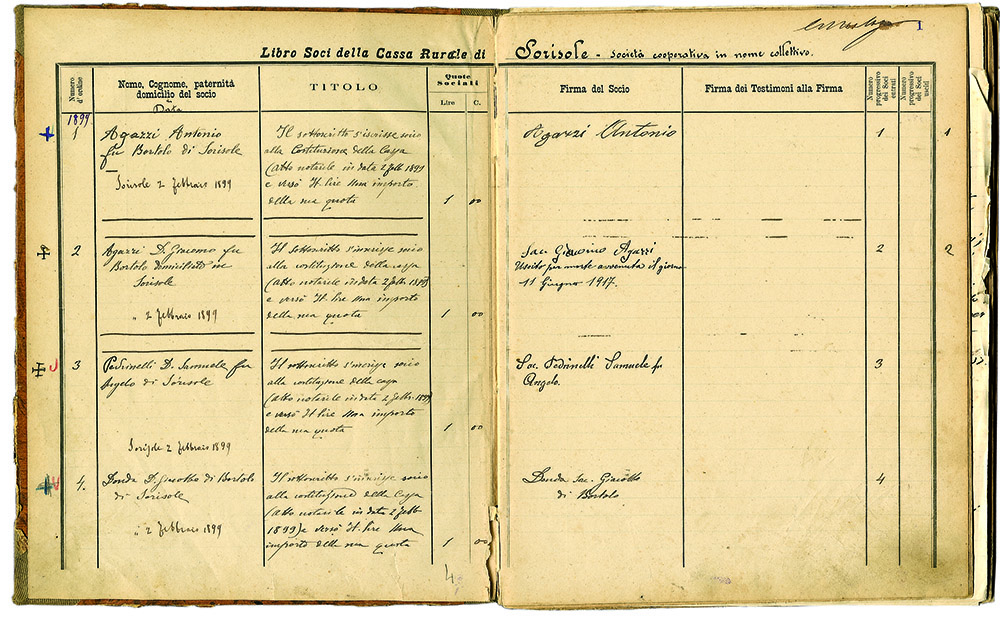 1
Libro Soci della Cassa Rurale di Sorisole - Società cooperativa in nome collettivo.
Numero d'ordine
Nome, Cognome, paternità
domicilio del socio
e
Data
TITOLO
Quote
Sociali
Lire
C.
Firma del Socio
Firma dei Testimoni alla Firma
Numero progressivo dei Soci entrati
Numero progressivo dei Soci usciti
1899
1
Agazzi Antonio
fu Bortolo di Sorisole
Sorisole 2 febbraio 1899
Il sottoscritto s'inscrisse socio
alla Costituzione della Cassa
(Atto notarile in data 2 febb 1899
e versò It. lire Una importo
della sua quota
1 00
Agazzi Antonio
1
1
2
Agazzi D. Giacomo fu
Bortolo domiciliato in
Sorisole
" 2 febbraio 1899
Il sottoscritto s'inscrisse socio
alla costituzione della cassa
(atto notarile in data 2 febb. 1899)
e versò It. lire Una importo
della sua quota
1 00
Sac. Giacomo Agazzi
Uscito per morte avvenuta il giorno
11 Giugno 1917.
2
2
3
Pedrinelli D. Samuele fu
Angelo di Sorisole
Sorisole 2 febbraio 1899
Il sottoscritto s'inscrisse socio
alla costituzione della cassa
(atto notarile in data 2 febbr. 1899)
e versò It. lire Una importo
della sua quota
1 00
Sac. Pedrinelli Samuele fu
Angelo.
3
4.
Donda D. Giacotto di Bortolo
di Sorisole
" 2 febbraio 1899
Il sottoscritto s'inscrisse socio
alla costituzione della Cassa
(Atto notarile in data 2 febb
1899) e versò It. lire Una
importo della sua quota
1 00
Donda Sac. Giacotto
di Bortolo
4
4